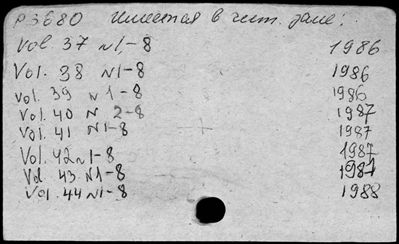 P3680 имеется в чит. зале:
Vol 37 N1-8 1986
Vol. 38 N1-8 1986
Vol. 39 N1-8 1986
Vol. 40 N 2-8 1987
Vol. 41 N1-8 1987
Vol. 42 N1-8 1987
Vol. 43 N1-8 1987
Vol. 44 N1-8 1988